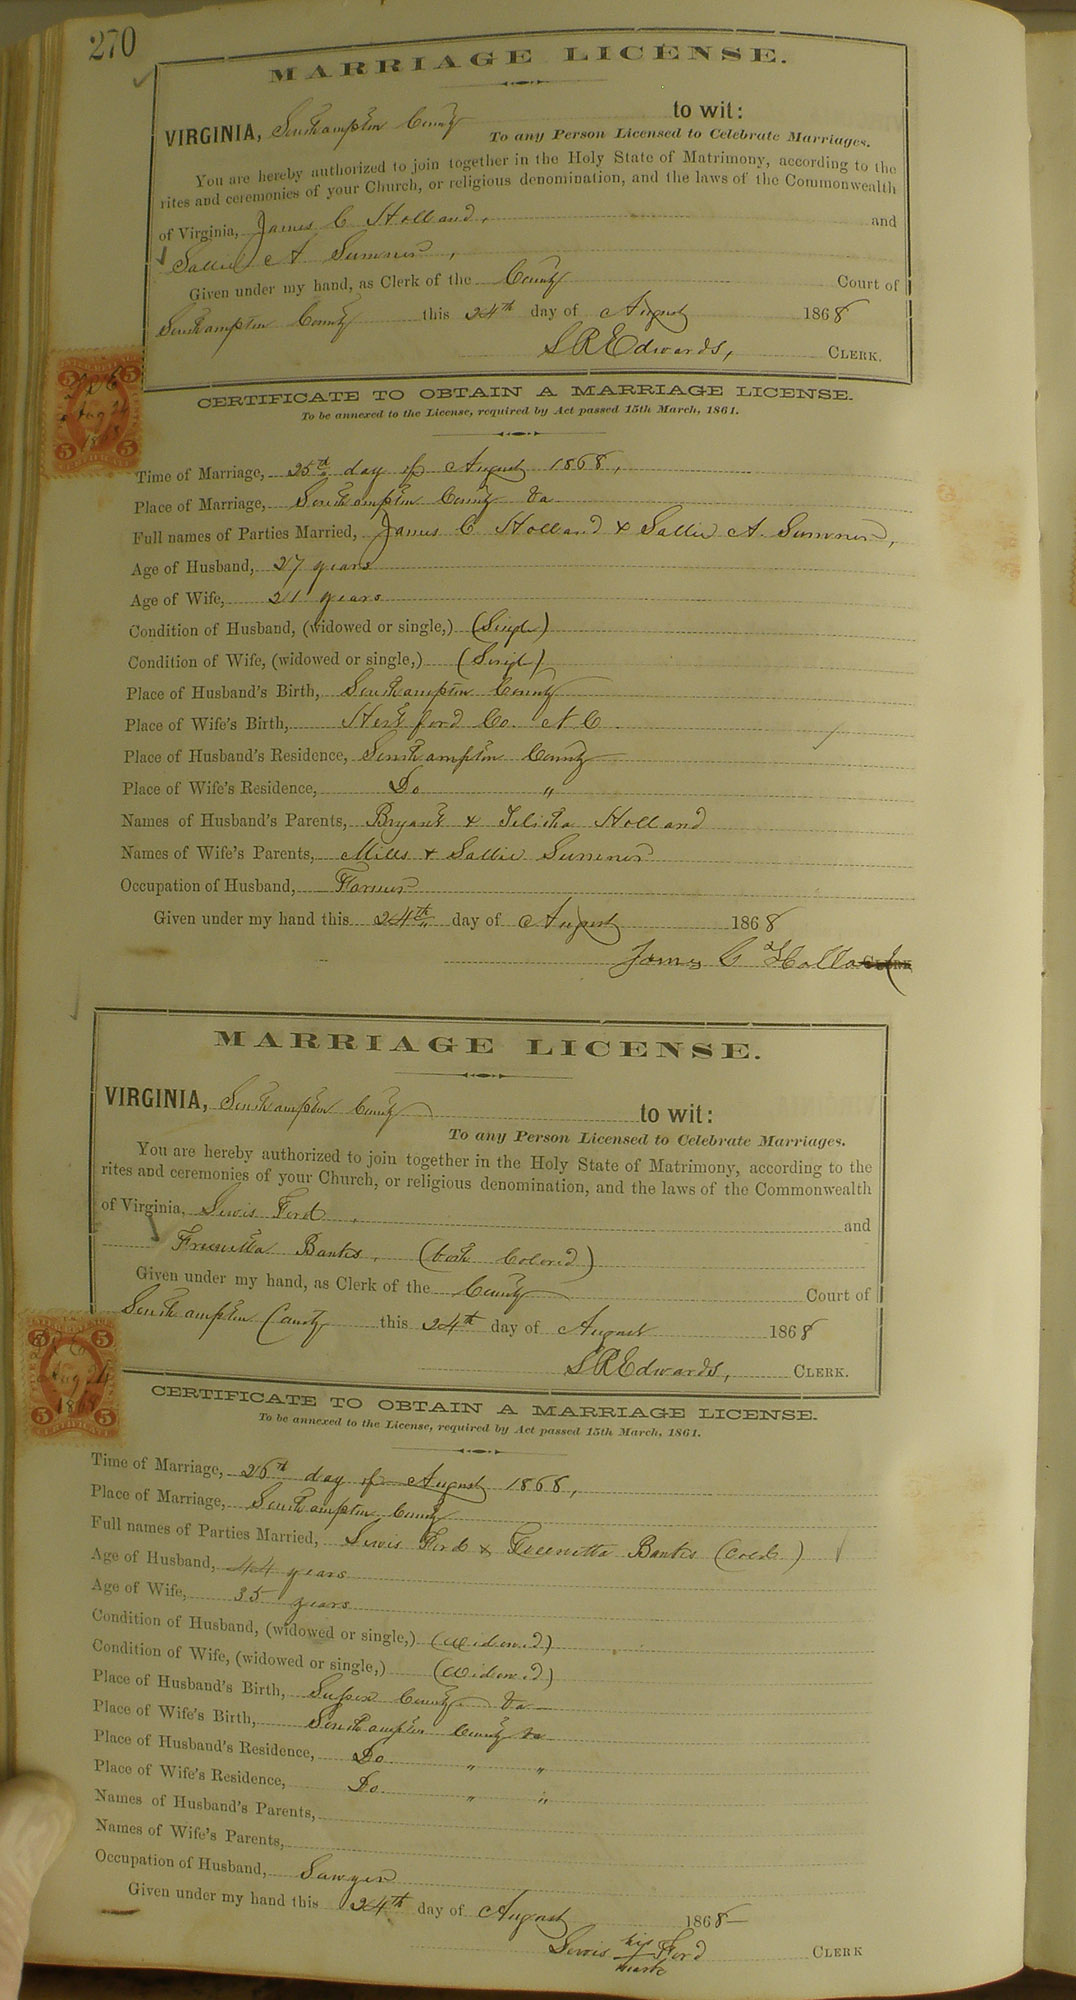 270
MARRIAGE LICENSE.
VIRGINIA, Southampton County to wit:
To any Person Licensed to Celebrate Marriages.
You are hereby authorized to join together in the Holy State of Matrimony, according to the
rites and ceremonies of your Church, or religious denomination, and the laws of the Commonwealth
of Virginia, James C Holland, and
Sallie A Sumner,
Given under my hand, as Clerk of the County Court of
Southampton County this 24th day of August 1868
LREdwards, CLERK.
5 5
Aug 24
1868
5 5
CERTIFICATE TO OBTAIN A MARRIAGE LICENSE.
To be annexed to the License, required by Act passed 15th March, 1861.
Time of Marriage, 25th day of August 1868,
Place of Marriage, Southampton County Va
Full names of Parties Married, James C Holland & Sallie A. Sumner,
Age of Husband, 27 years
Age of Wife, 21 years
Condition of Husband, (widowed or single,) (Single)
Condition of Wife, (widowed or single,) (Singl)
Place of Husband's Birth, Southampton County
Place of Wife's Birth, Hertford Co. N C
Place of Husband's Residence, Southampton County
Place of Wife's Residence, Do "
Names of Husband's Parents, Bryant & Holland
Names of Wife's Parents, Mills & Sallie Sumner
Occupation of Husband, Farmer
Given under my hand this 24th day of August 1868
James C Holland CLERK
MARRIAGE LICENSE.
VIRGINIA, Southampton County to wit:
To any Person Licensed to Celebrate Marriages.
You are hereby authorized to join together in the Holy State of Matrimony, according to the
rites and ceremonies of your Church, or religious denomination, and the laws of the Commonwealth
of Virginia, Lewis Ford, and
Banks, (both Colored)
Given under my hand, as Clerk of the County Court of
Southampton County this 24th day of August 1868
LREdwards, CLERK.
5 5
Aug 24
1868
5 5
CERTIFICATE
CERTIFICATE TO OBTAIN A MARRIAGE LICENSE.
To be annexed to the License, required by Act passed 15th March, 1861.
Time of Marriage, 26th day of August 1868,
Place of Marriage, Southampton County
Full names of Parties Married, Lewis Ford & Banks (Cold)
Age of Husband, 44 years
Age of Wife, 35 years
Condition of Husband, (widowed or single,) (Widowed)
Condition of Wife, (widowed or single,) (Widowed)
Place of Husband's Birth, Sussex County Va
Place of Wife's Birth, Southampton County Va
Place of Husband's Residence, Do " "
Place of Wife's Residence, Do. " "
Names of Husband's Parents,
Names of Wife's Parents,
Occupation of Husband, Sawyer
Given under my hand this 24th day of August 1868
Lewis his Ford CLERK
mark